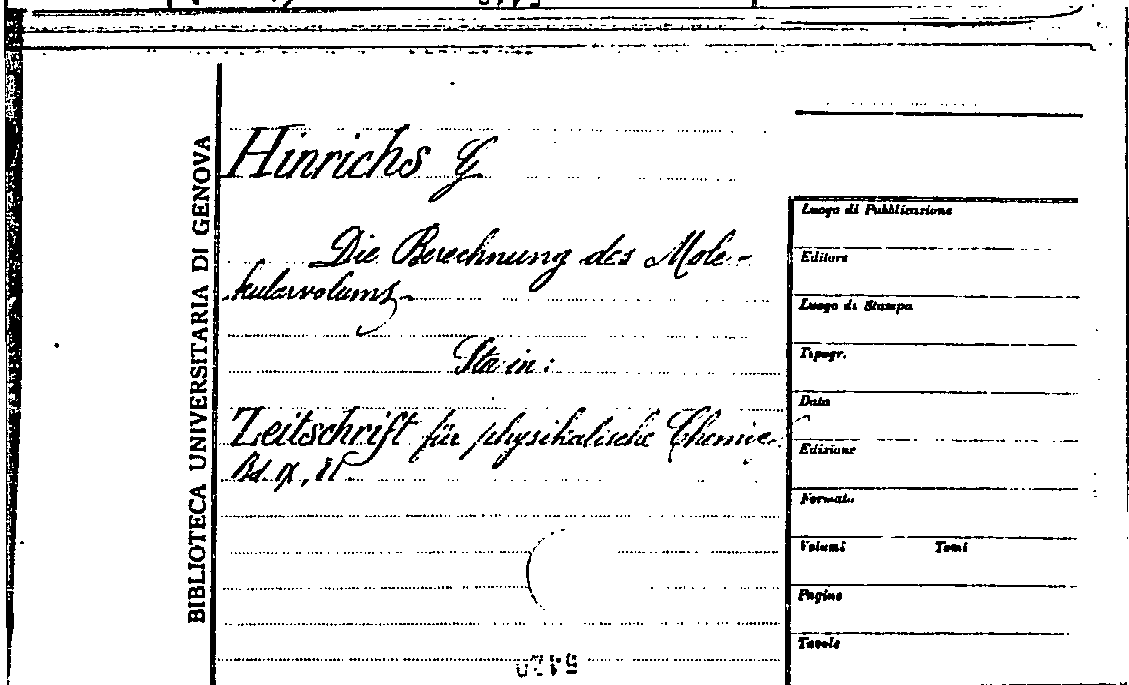 BIBLIOTECA UNIVERSITARIA DI GENOVA
Hinrichs G
Die Berechnung des Mole-
kularvolums
Sta in:
Zeitschrift für physikalische Chemie
Bd. IX,
Luogo di Pubblicazione
Editore
Luogo di Stampa
Tipogr.
Data
Edizione
Formato
Volumi Tomi
Pagine
Tavole